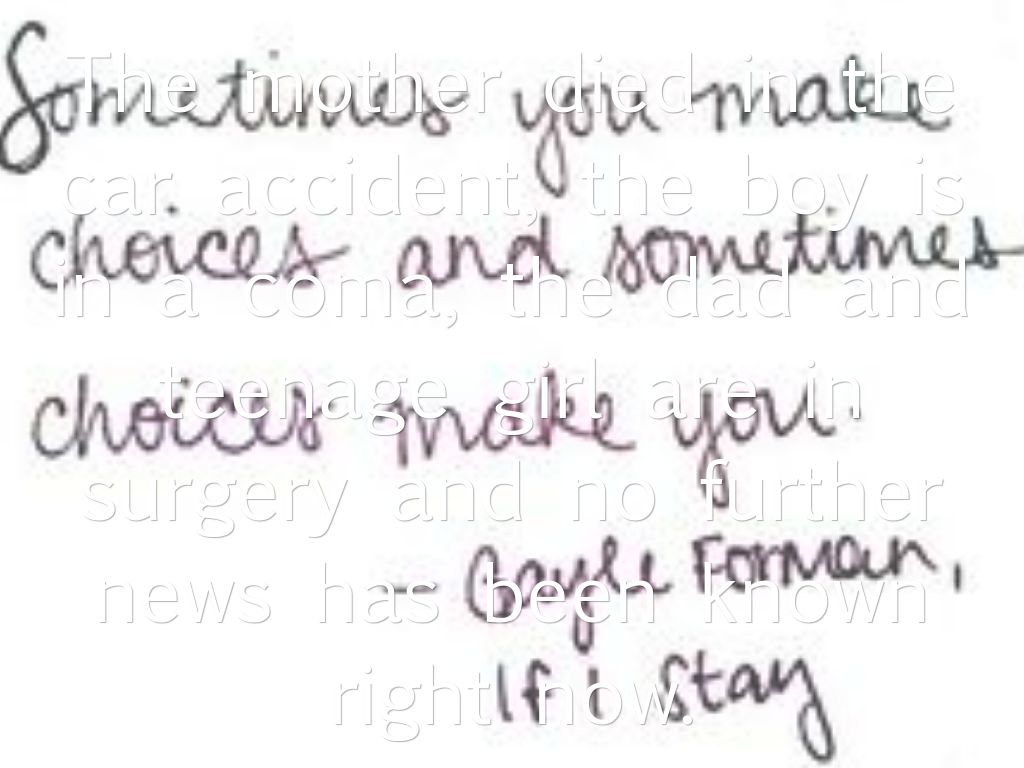 Sometimes you make
choices and sometimes
choices make you.
- Gayle Forman,
If I Stay
The mother died in the
car accident, the boy is
in a coma, the dad and
teenage girl are in
surgery and no further
news has been known
right now.